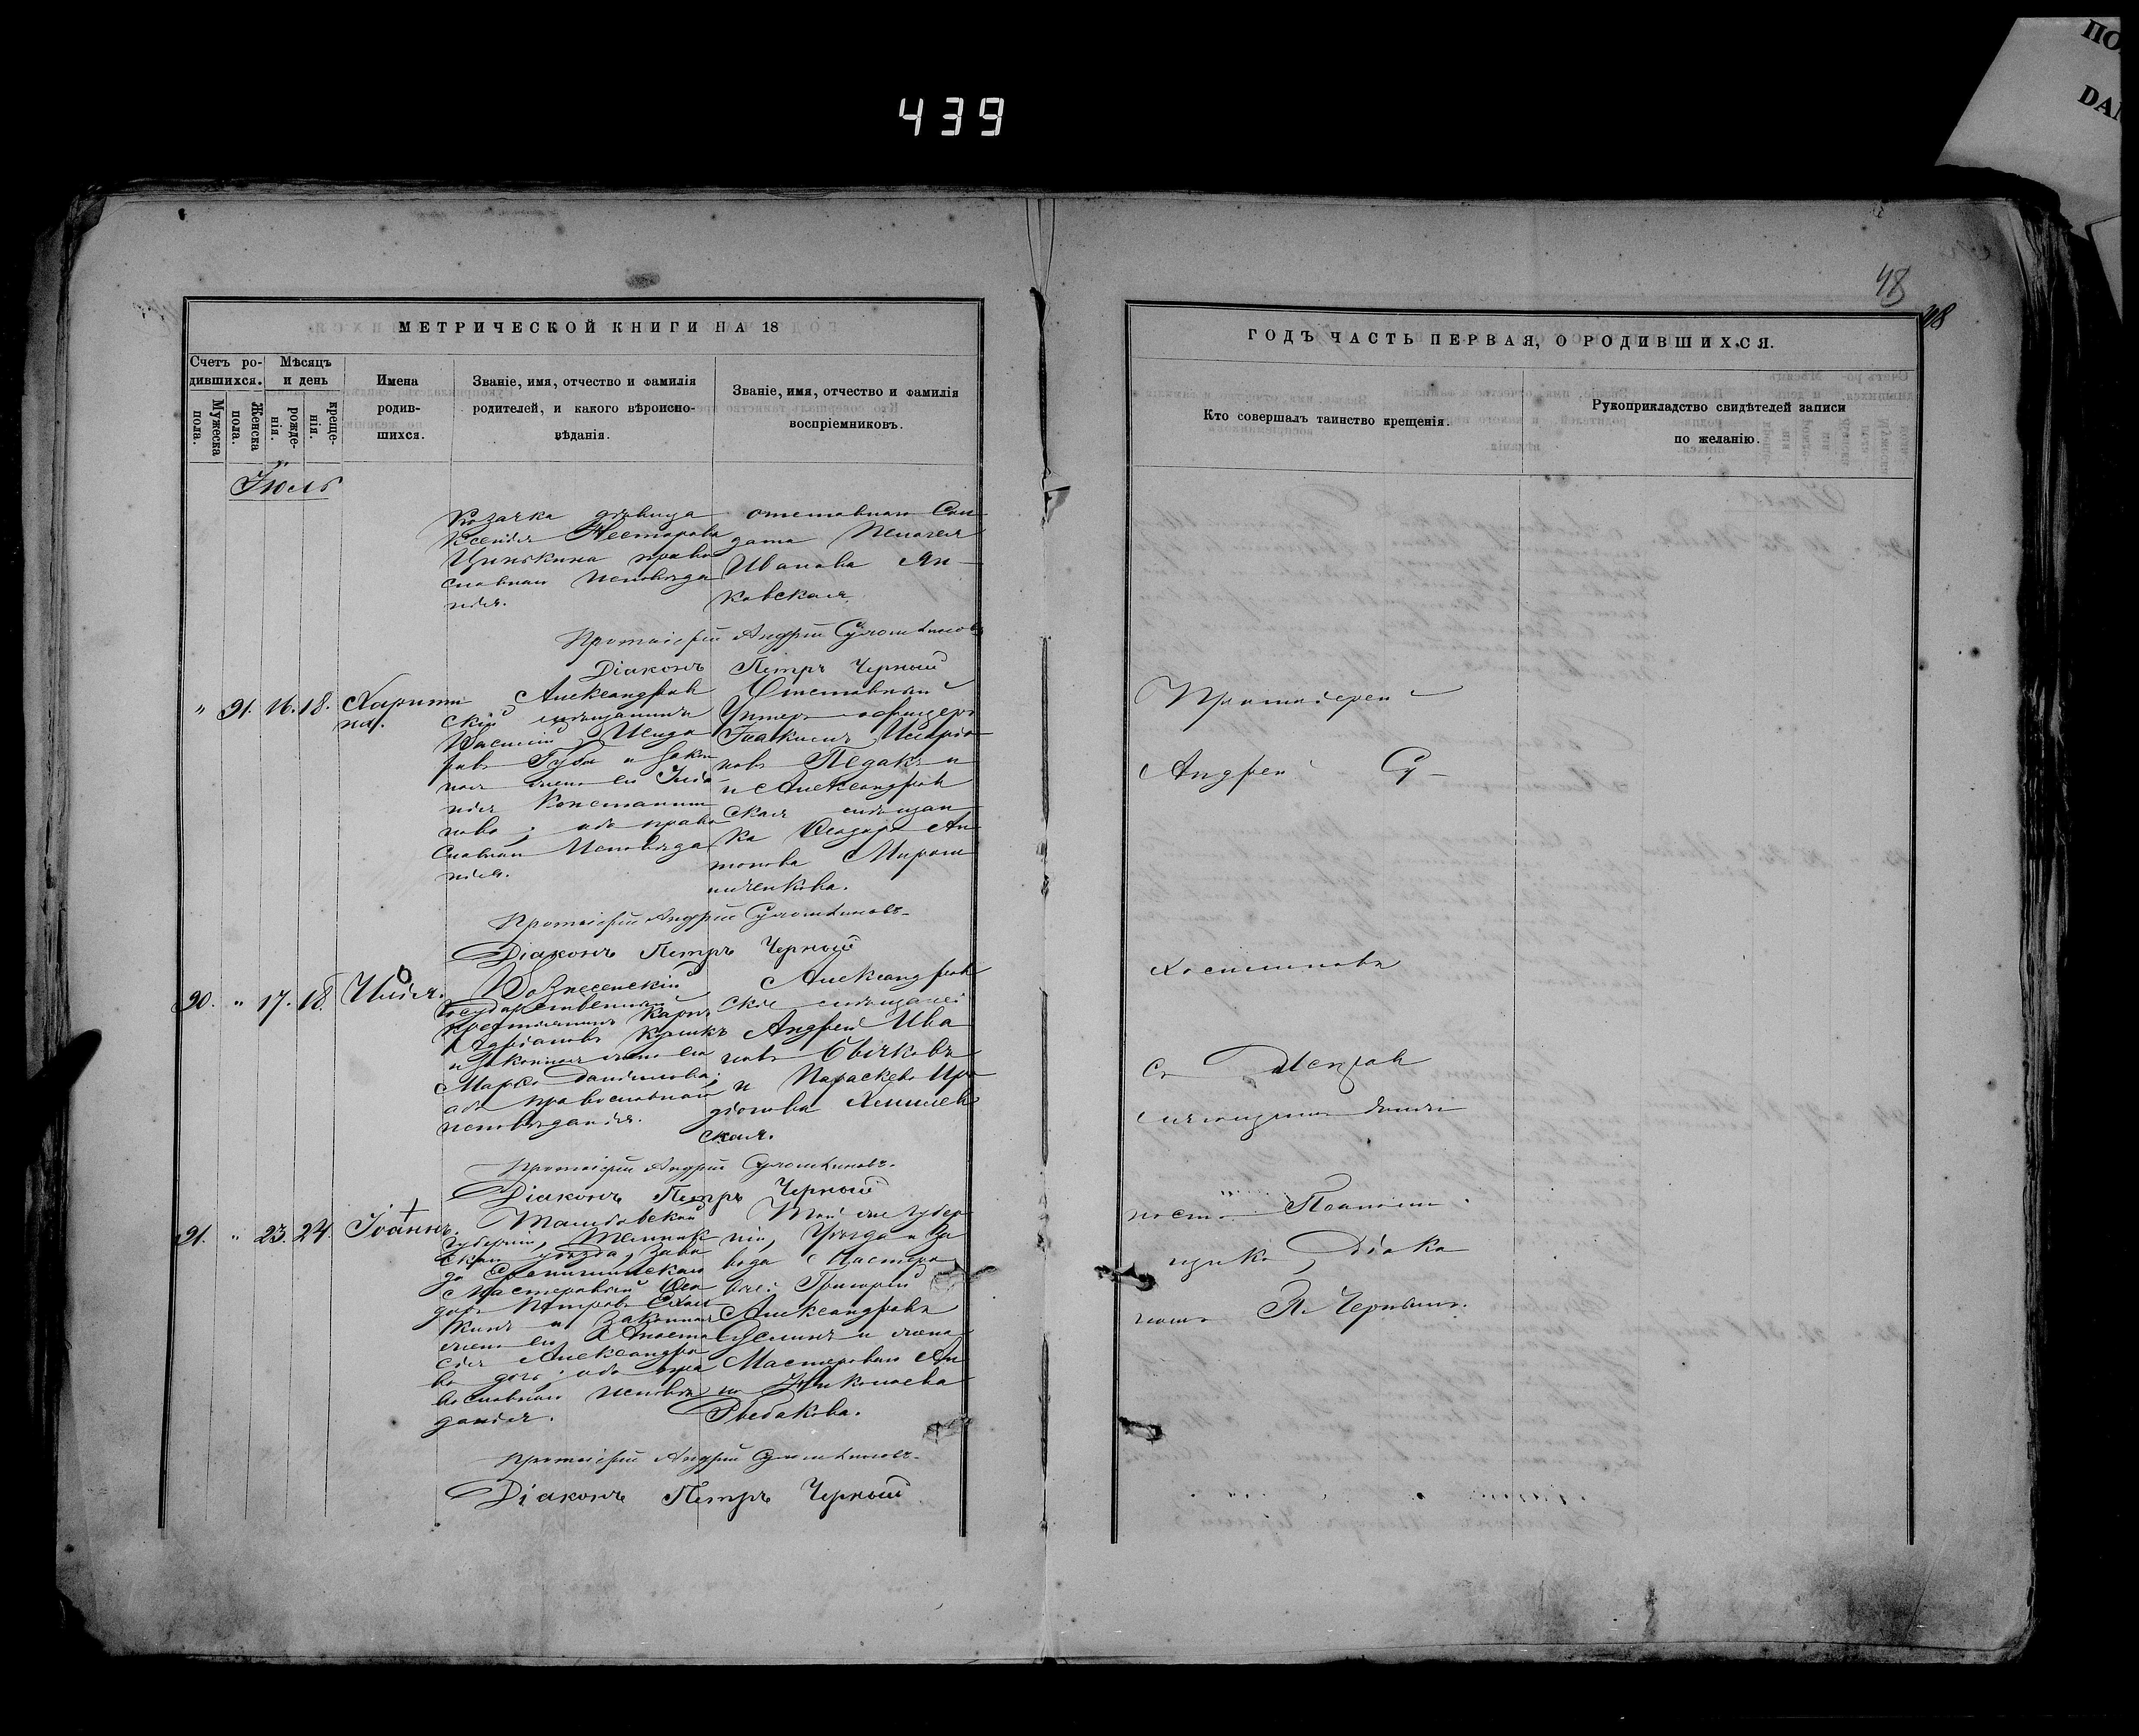 ПО
DAN
439
48
48
МЕТРИЧЕСКОЙ КНИГИ НА 18
Счетъ ро-
дившихся.
Мужеска
пола.
Женска
пола.
Мѣсяцъ
и день
рожде-
нія.
креще-
нія.
Имена
родив-
шихся.
Званіе, имя, отчество и фамилія
родителей, и какого вѣроиспо-
вѣданія.
Званіе, имя, отчество и фамилія
воспріемниковъ.
Іюль
Козачка дѣвица
Ксенія Несторова
православнаго
исповѣда
нія.
отставнаго Сол
дата Пелагея
Иванова Ян-
ковская.
Протоіерей Андрей
Діаконъ Петръ Черный
" 91. 16. 18. Харити
на.
Александров
скій мѣщанинъ
Василій Исидо
ровъ Губа и закон
ная жена его Іулі
нія Константи
нова; оба право
славнаго исповѣда
нія.
Отставный
Унтеръ-офицеръ
Іоакимъ Иларіо
новъ Педакъ и
и Александров
ская мѣщан
ка Ѳеодора Ан
тонова Мирош
ниченкова.
Протоіерей Андрей
Діаконъ Петръ Черный
90. " 17. 18. Илія.
Вознесенскій
Государственный
крестьянинъ Карпъ
и законная жена его
Марѳа Даніилова;
оба православнаго
исповѣданія.
Александров
скіе мѣщане:
Андрей Ива
новъ Свѣчковъ
и Параскева Иро
діонова
ская.
Протоіерей Андрей
Діаконъ Петръ Черный
91. " 23. 24. Іоаннъ.
Тамбовской
губерніи, Темников
скаго уѣзда, заво
да
Мастеровый Ѳео
доръ Петровъ
кинъ и законная
жена его Анаста
сія Александро
ва дочь; оба пра
вославнаго исповѣ
данія.
Той же губер
ніи, уѣзда и за
вода Мастеро
вые: Григорій
Александровъ
и жена
Мастероваго Ан
на Николаева
Рыбакова.
Протоіерей Андрей
Діаконъ Петръ Черный
ГОДЪ ЧАСТЬ ПЕРВАЯ, О РОДИВШИХСЯ.
Кто совершалъ таинство крещенія.
Рукоприкладство свидѣтелей записи
по желанію.
Протоіерей
Андрей
съ Исправ
ляющимъ должн
ность Псаломщ
щика, Діако
номъ П. Чернымъ.